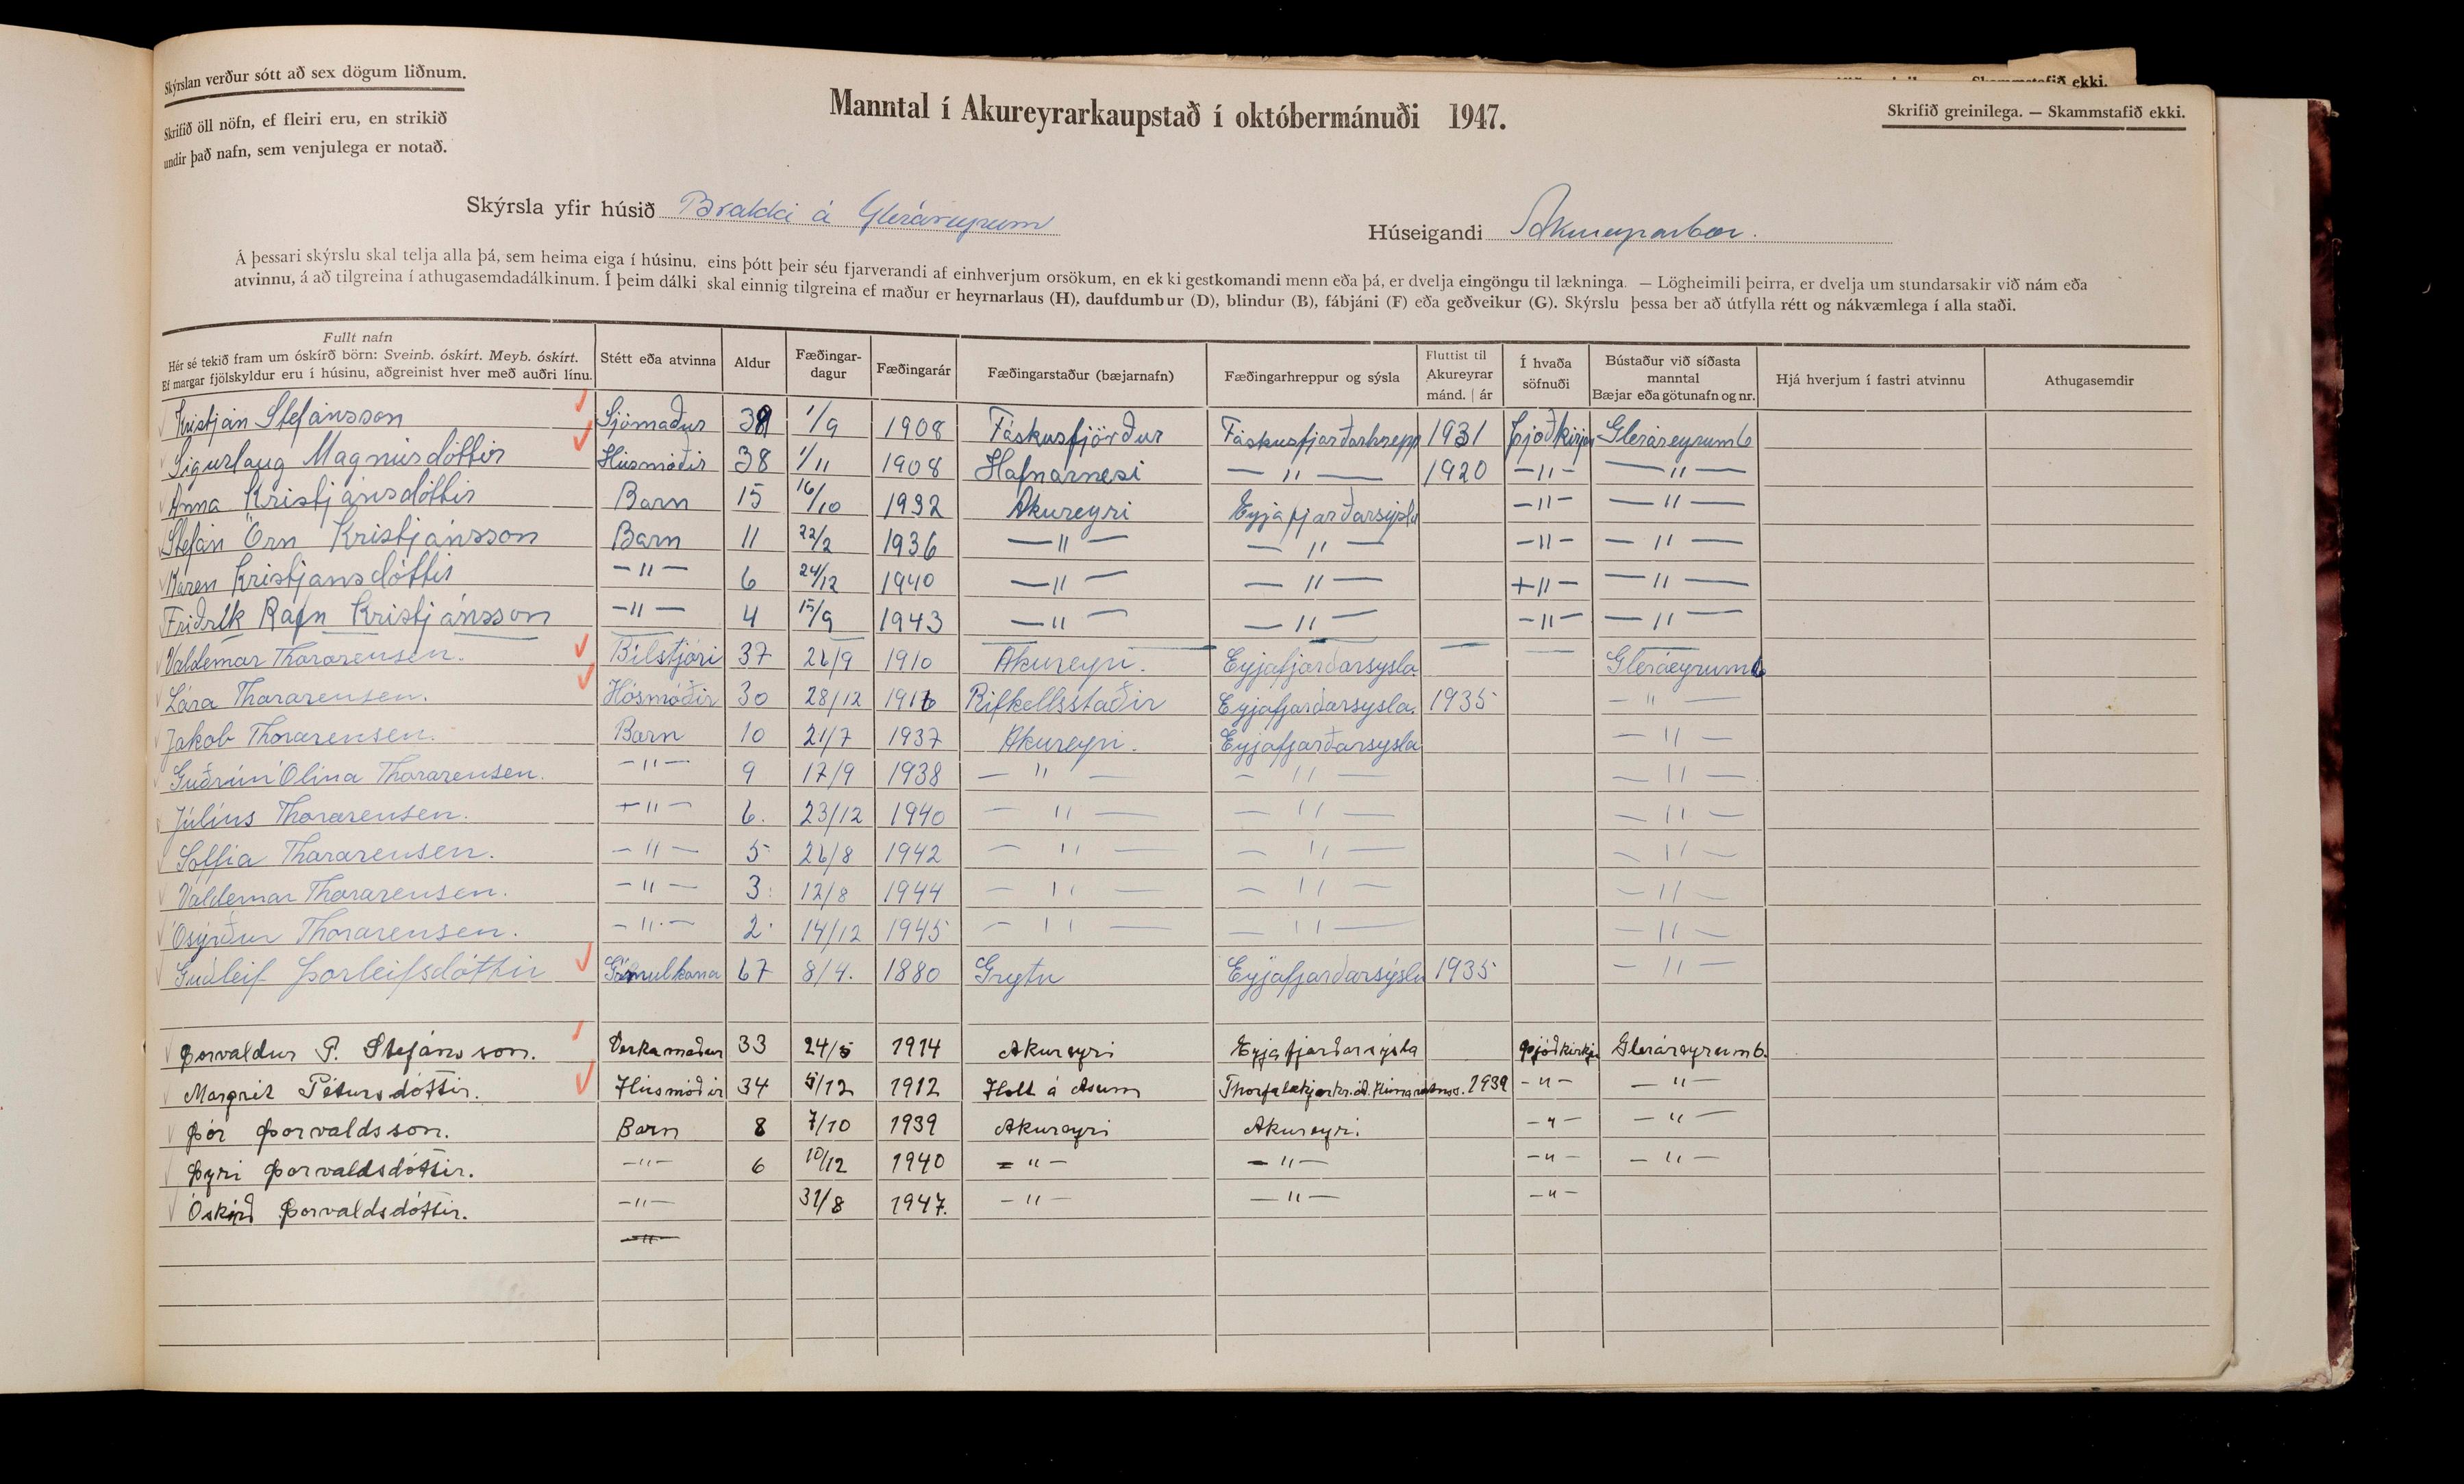 Skýrslan verður sótt að sex dögum liðnum.
Skrifið öll nöfn, ef fleiri eru, en strikið
undir það nafn, sem venjulega er notað.
Manntal í Akureyrarkaupstað í októbermánuði 1947.
Skammstafið ekki.
Skrifið greinilega. — Skammstafið ekki.
Skýrsla yfir húsið Brakki á Gleráreyrum
Húseigandi Akureyrarbær.
Á þessari skýrslu skal telja alla þá, sem heima eiga í húsinu, eins þótt þeir séu fjarverandi af einhverjum orsökum, en ekki gestkomandi menn eða þá, er dvelja eingöngu til lækninga. — Lögheimili þeirra, er dvelja um stundarsakir við nám eða
atvinnu, á að tilgreina í athugasemdadálkinum. Í þeim dálki skal einnig tilgreina ef maður er heyrnarlaus (H), daufdumbur (D), blindur (B), fábjáni (F) eða geðveikur (G). Skýrslu þessa ber að útfylla rétt og nákvæmlega í alla staði.
Fullt nafn
Hér sé tekið fram um óskírð börn: Sveinb. óskírt. Meyb. óskírt.
Ef margar fjölskyldur eru í húsinu, aðgreinist hver með auðri línu.
Stétt eða atvinna
Aldur
Fæðingar-
dagur
Fæðingarár
Fæðingarstaður (bæjarnafn)
Fæðingarhreppur og sýsla
Fluttist til
Akureyrar
mánd. | ár
Í hvaða
söfnuði
Bústaður við síðasta
manntal
Bæjar eða götunafn og nr.
Hjá hverjum í fastri atvinnu
Athugasemdir
Kristján Stefánsson Sjómaður 39 1/9 1908 Fáskusfjörður Fáskusfjarðarhrepp 1931 Þjóðkirjan Gleráreyrum 6
Sigurlaug Magnúsdóttir Húsmóðir 38 1/11 1908 Hafnarnesi —"— 1920 —"— —"—
Anna Kristjánsdóttir Barn 15 16/10 1932 Akureyri Eyjafjarðarsýsla —"— —"—
Stefán Örn Kristjánsson Barn 11 22/2 1936 —"— —"— —"— —"—
Karen Kristjansdóttir —"— 6 24/12 1940 —"— —"— —"— —"—
Friðrik Rafn Kristjánsson —"— 4 15/9 1943 —"— —"— —"— —"—
Valdemar Thorarensen. Bílstjóri 37 26/9 1910 Akureyri. Eyjafjarðarsysla. — — Gleráeyrum 6
Lára Thorarensen. Hósmóðir 30 28/12 1916 Rifkellsstaðir Eyjafjarðarsysla. 1935 —"—
Jakob Thorarensen. Barn 10 21/7 1937 Akureyri. Eyjafjarðarsysla —"—
Guðrún Ólina Thorarensen. —"— 9 17/9 1938 —"— —"— —"—
Júlíus Thorarensen. —"— 6. 23/12 1940 —"— —"— —"—
Solfia Thorarensen. —"— 5 26/8 1942 —"— —"— —"—
Valdemar Thorarensen. —"— 3. 12/8 1944 —"— —"— —"—
Thorarensen. —"— 2. 14/12 1945 —"— —"— —"—
Guðleif Þorleifsdóttir Gömulkona 67 8/4. 1880 Grytu Eyjafjarðarsýsla 1935 —"—
Þorvaldur P. Stefánsson. Verkamaður 33 24/5 1914 Akureyri Eyjafjarðarsýsla Þjóðkirkju Gleráreyrum 6.
Margrét Pétursdóttir. Húsmóðir 34 5/12 1912 Holt á Asum 1939 —"— —"—
Þór Þorvaldsson. Barn 8 7/10 1939 Akureyri Akureyri. —"— —"—
Þyri Þorvaldsdóttir. —"— 6 10/12 1940 —"— —"— —"— —"—
Óskírð Þorvaldsdóttir. —"— 31/8 1947. —"— —"— —"—
—"—